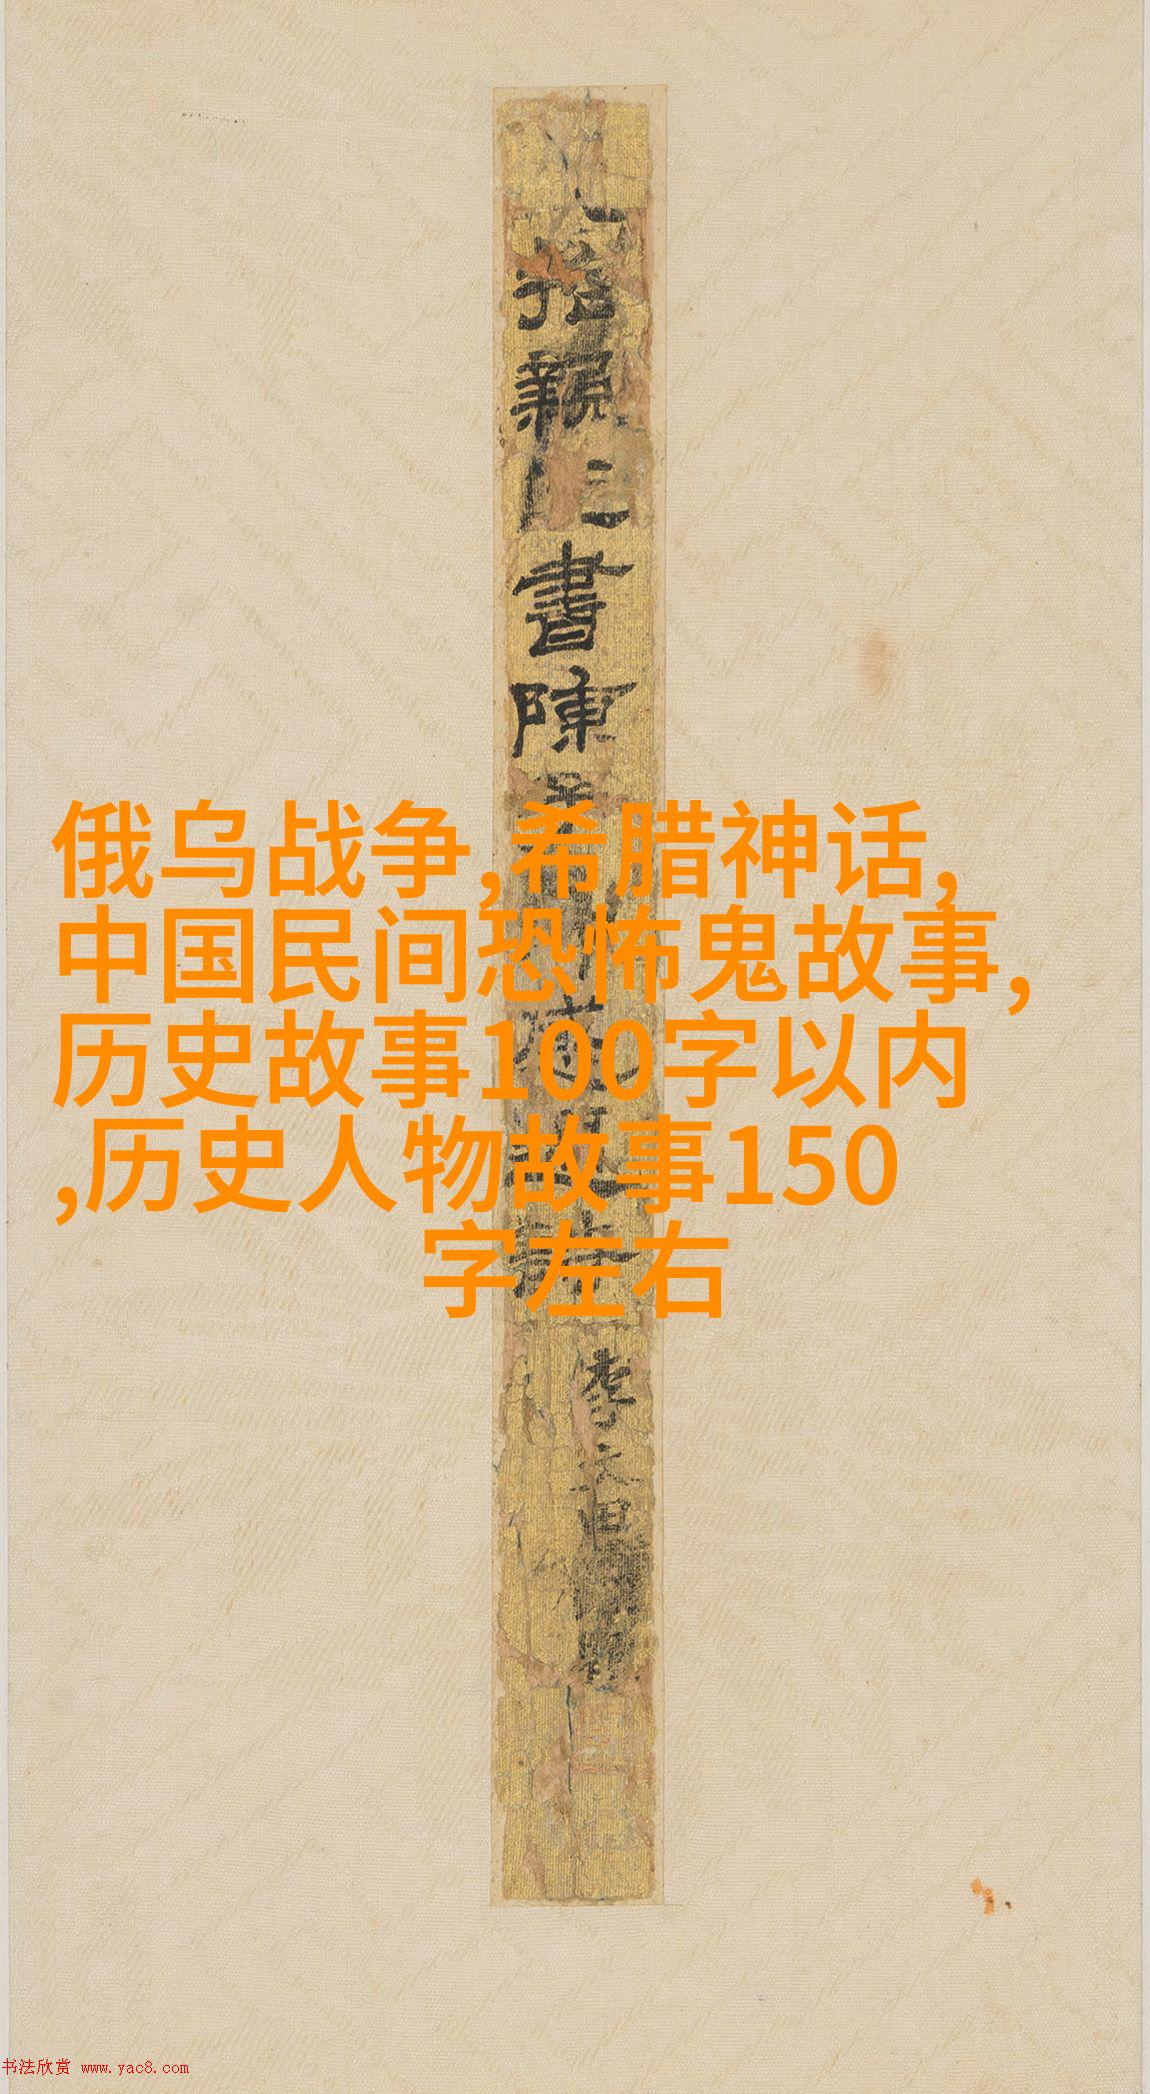 俄乌战争,希腊神话,
中国民间恐怖鬼故事,
历史故事100字以内
,历史人物故事150
字左右
親
書陳
李文田
書法欣赏 www.yac8.com